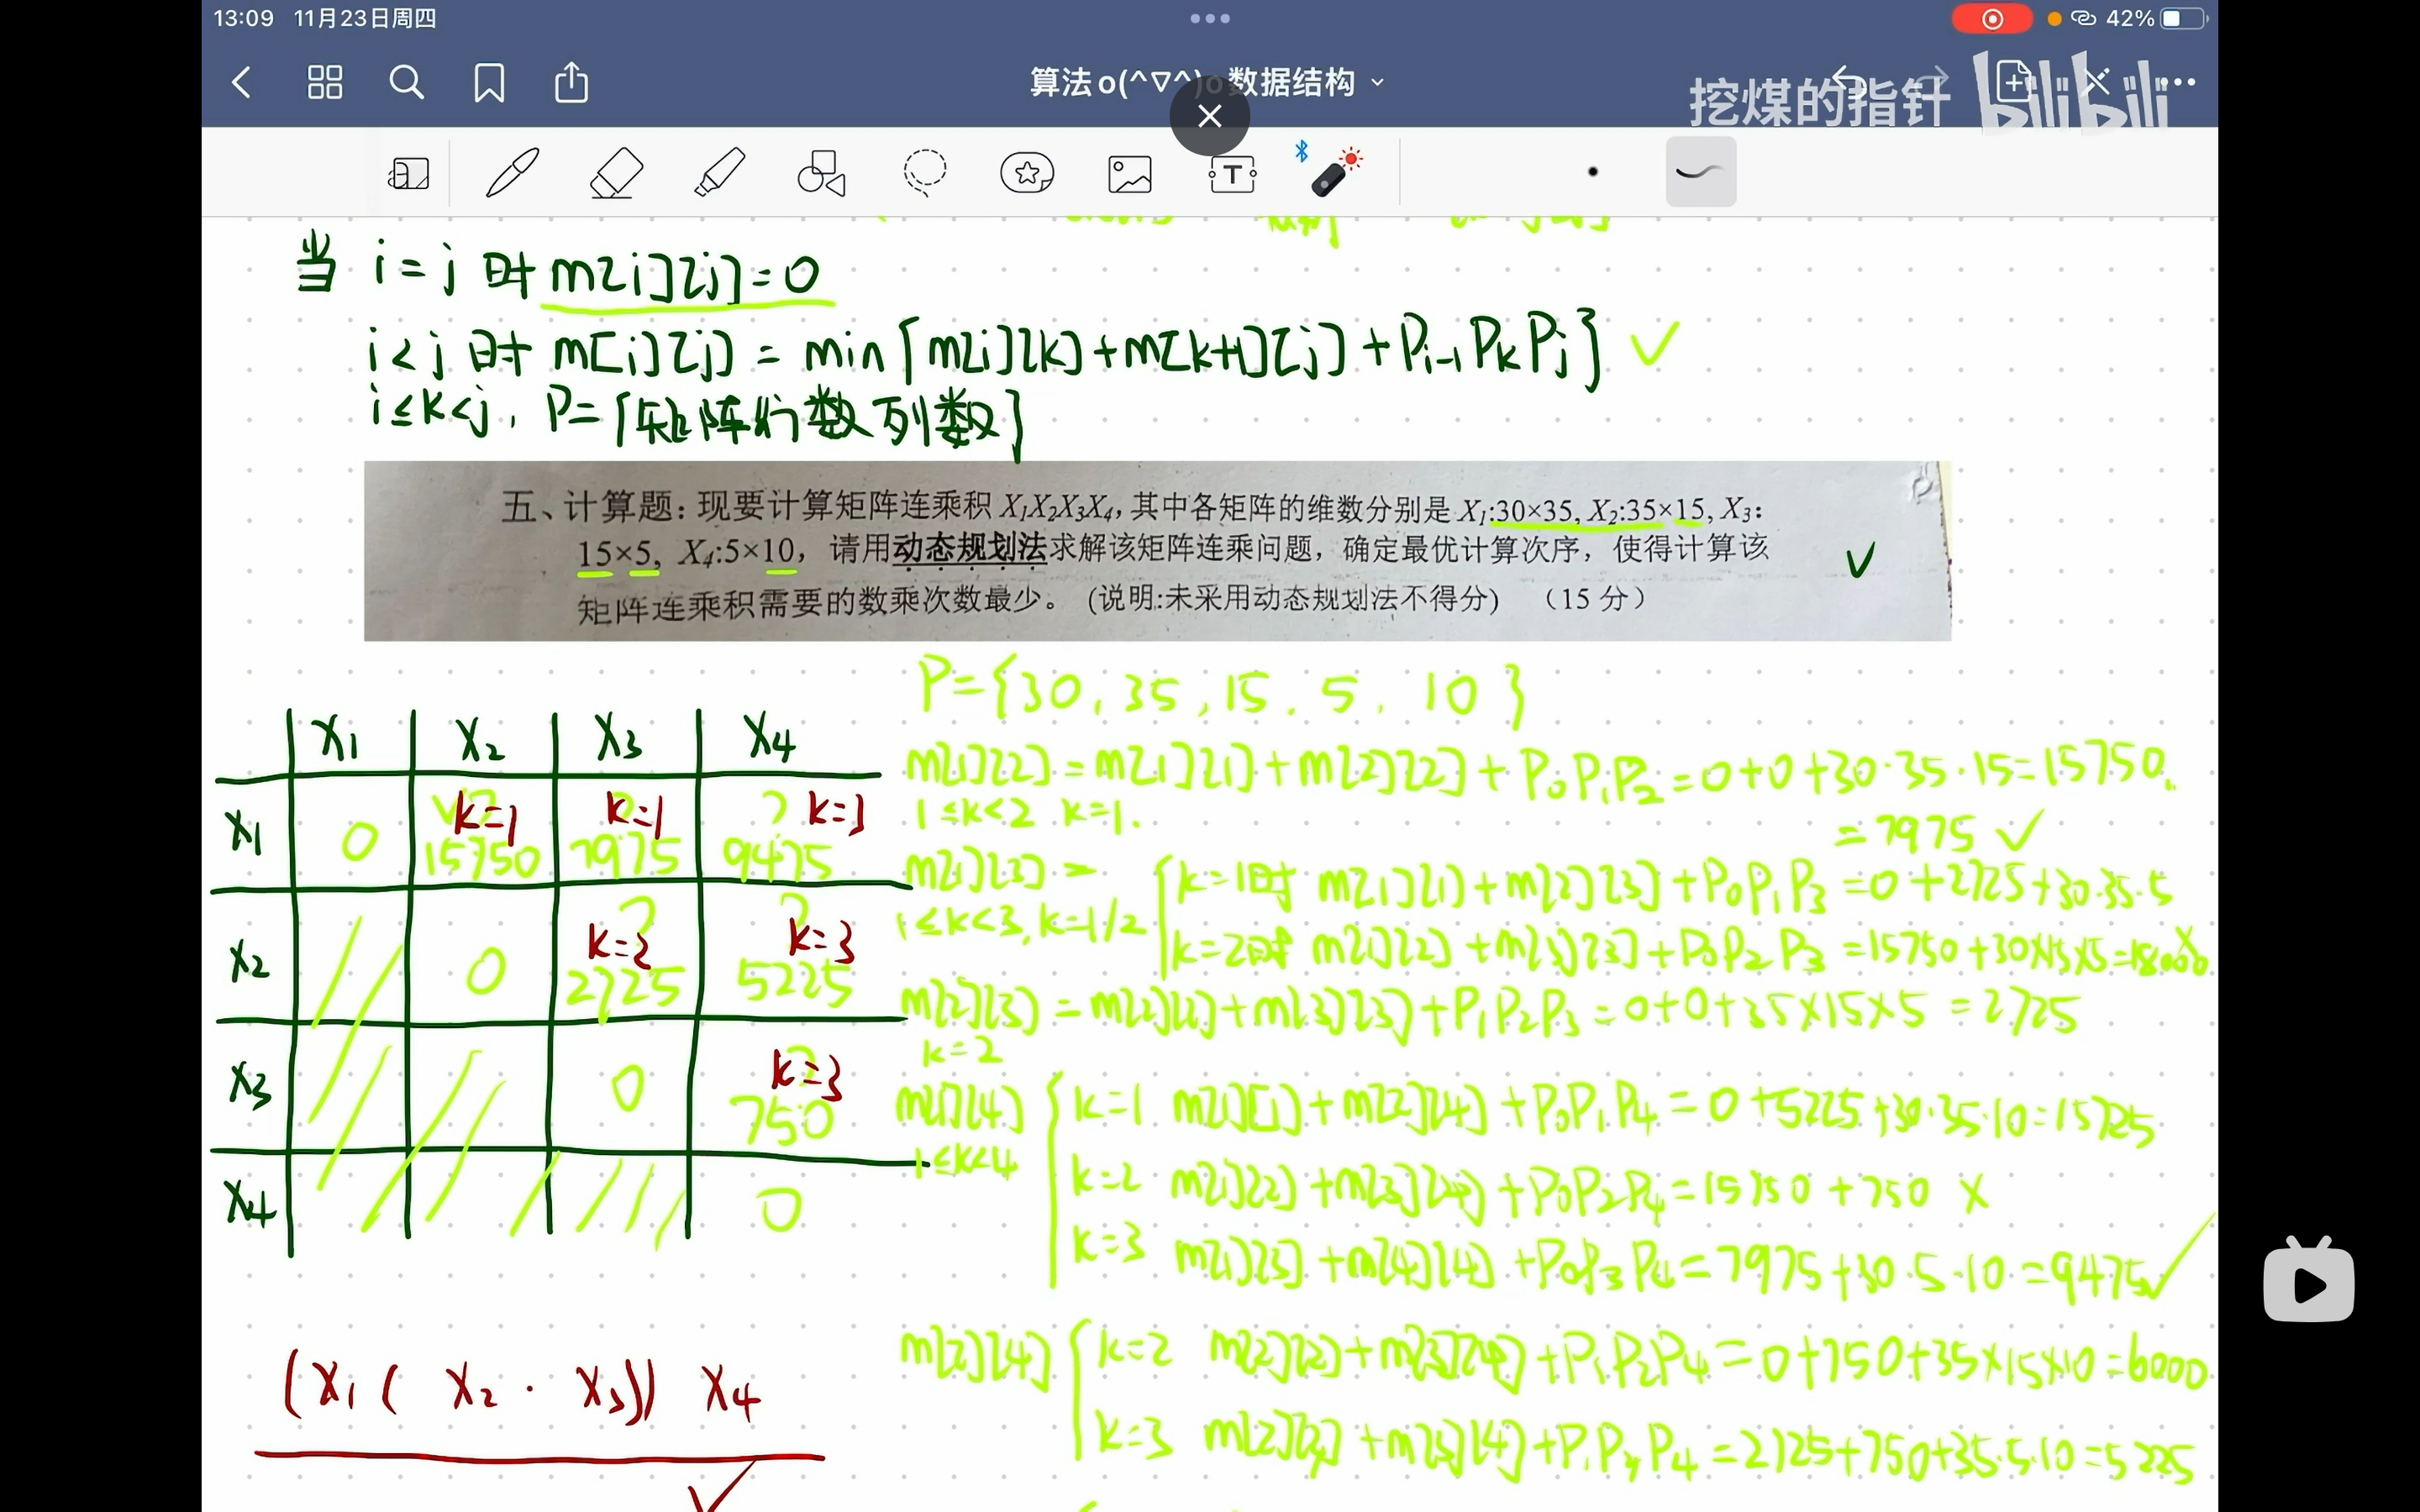 13:09 11月23日周四
42%
算法o(^∇^)o数据结构
挖煤的指针 bilibili
当 i=j 时 m[i][j]=0
i<j 时 m[i][j] = min{m[i][k]+m[k+1][j]+Pi-1PkPj}
i≤k<j, P={矩阵行数列数}
五、计算题：现要计算矩阵连乘积 X₁X₂X₃X₄，其中各矩阵的维数分别是 X₁:30×35, X₂:35×15, X₃:
15×5, X₄:5×10，请用动态规划法求解该矩阵连乘问题，确定最优计算次序，使得计算该
矩阵连乘积需要的数乘次数最少。（说明:未采用动态规划法不得分）（15 分）
P={30, 35, 15. 5. 10}
X1 X2 X3 X4
X1 0 k=1 15750 k=1 7975 k=3 9475
X2 0 k=2 2725 k=3 5225
X3 0 k=3 750
X4 0
(X1( X2 · X3)) X4
m[1][2] = m[1][1] + m[2][2] + P0P1P2 = 0+0+30·35·15=15750.
1≤k<2 k=1.
= 7975 ✓
m[1][3] =
1≤k<3, k=1/2
k=1时 m[1][1]+m[2][3]+P0P1P3 =0+2725+30·35·5
k=2时 m[1][2]+m[3][3]+P0P2P3 =15750+30×15×5=18000
m[2][3] = m[2][2]+m[3][3]+P1P2P3=0+0+35×15×5 =2725
k=2
m[1][4]
1≤k<4
k=1 m[1][1]+m[2][4]+P0P1P4 = 0+5225+30·35·10=15725
k=2 m[1][2]+m[3][4]+P0P2P4=15750+750 X
k=3 m[1][3]+m[4][4]+P0P3P4=7975+30·5·10=9475✓
m[2][4]
k=2 m[2][2]+m[3][4]+P1P2P4=0+750+35×15×10=6000
k=3 m[2][3]+m[3][4]+P1P3P4=2725+750+35·5·10=5225